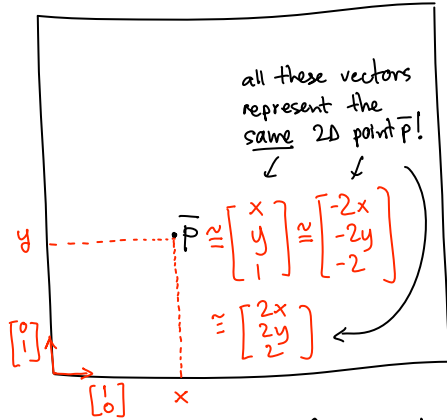 all these vectors
represent the
same 2D point p̅!
y
p̅ ≅ [x y 1] ≅ [-2x -2y -2]
≅ [2x 2y 2]
[0 1]
[1 0]
x